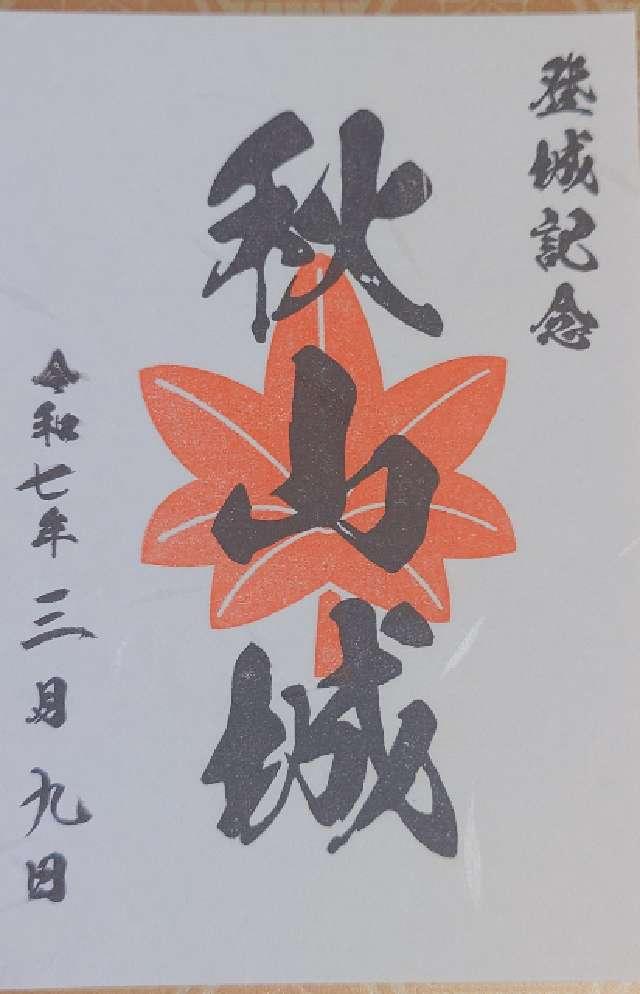 登城記念
秋山城
令和七年三月九日